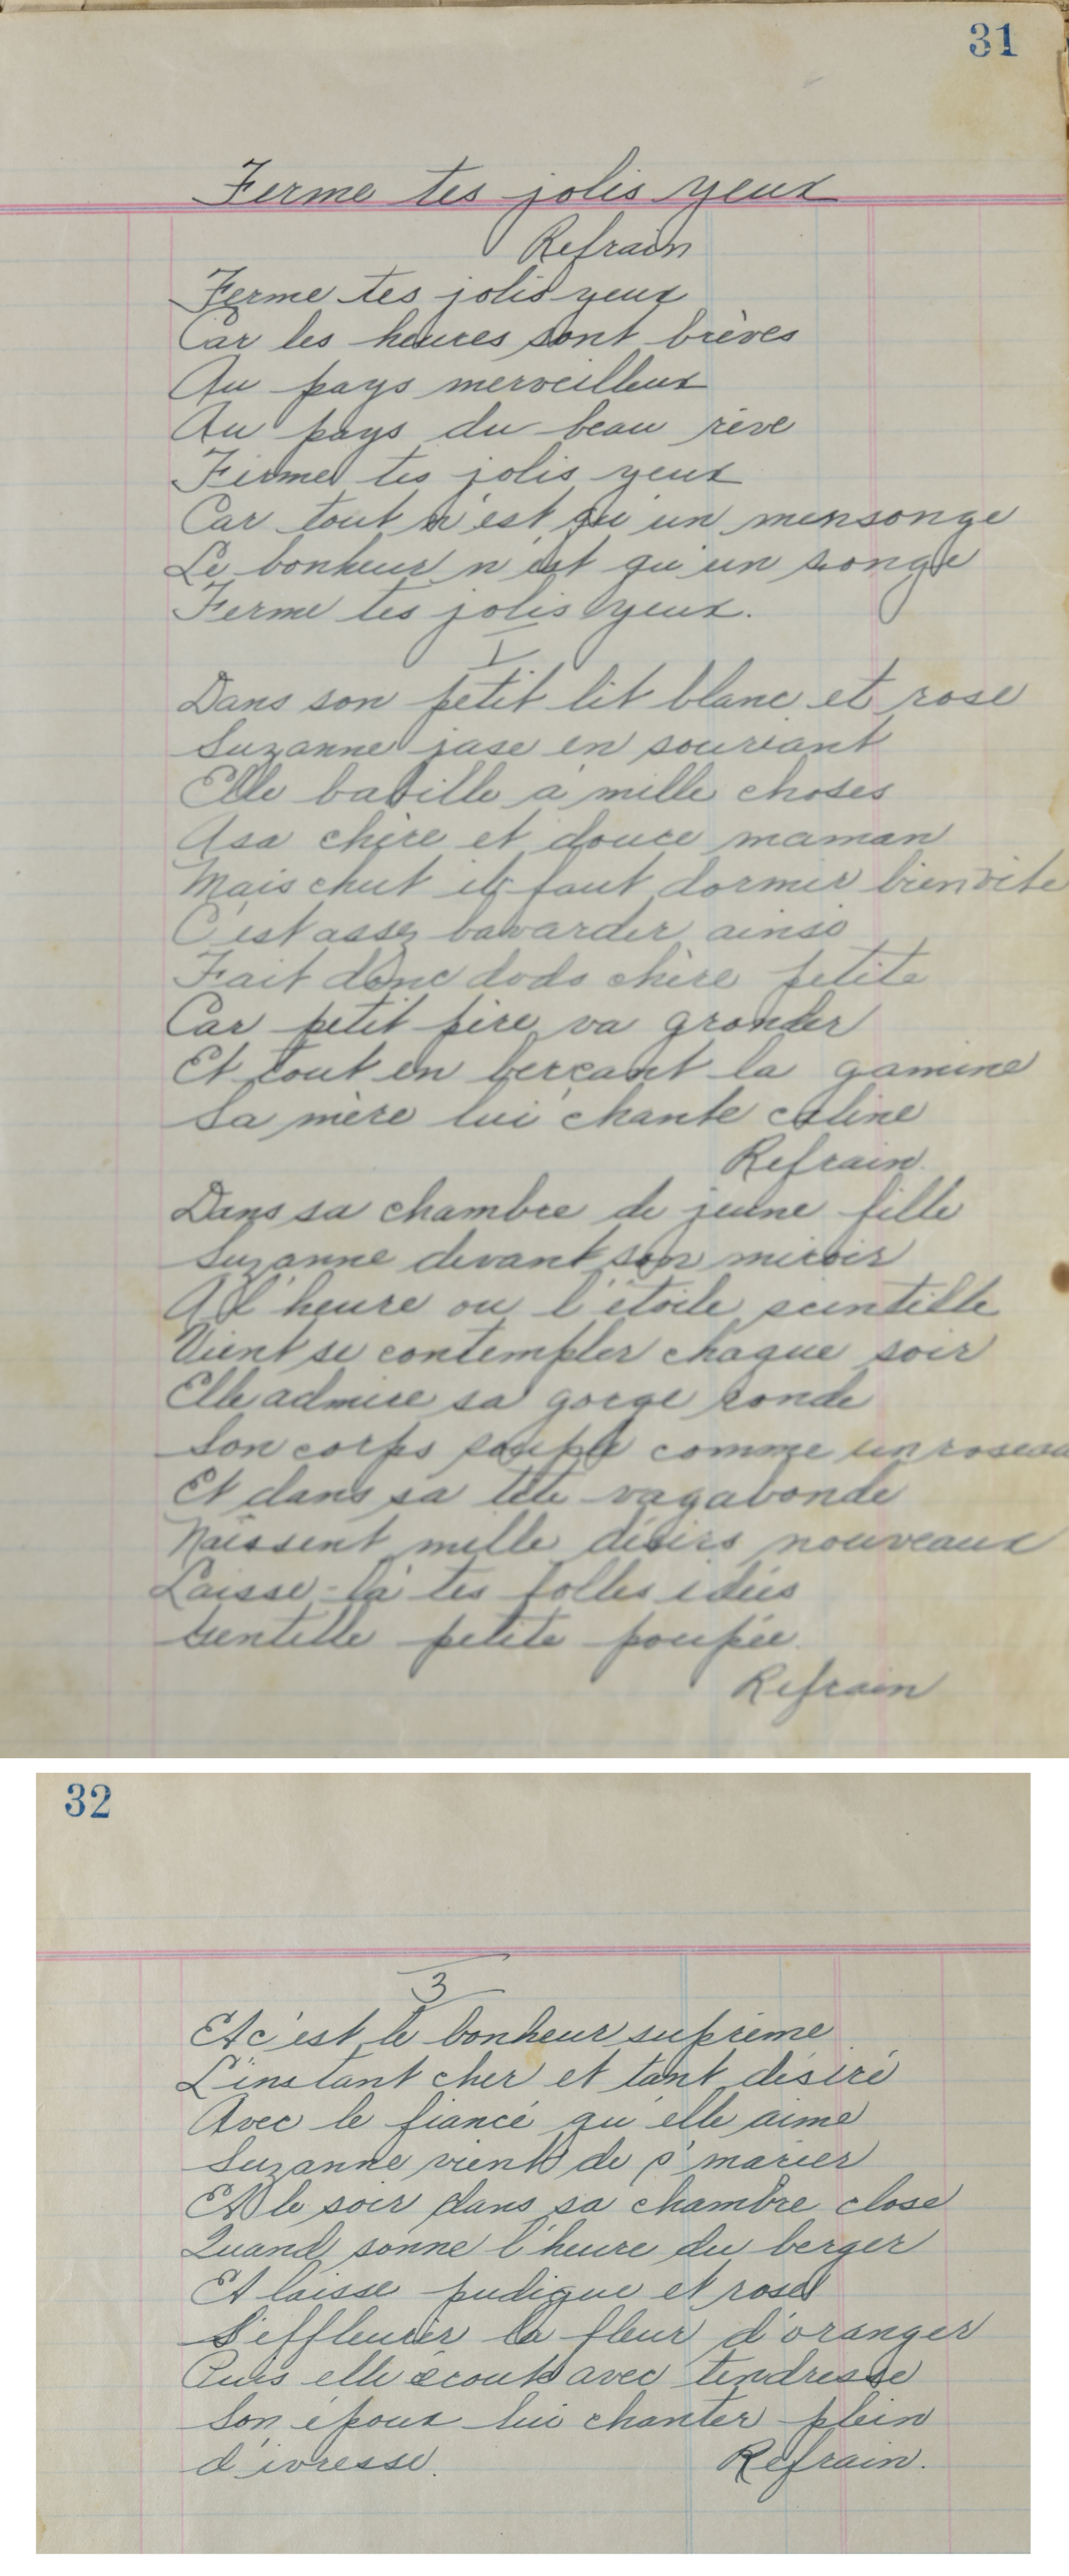 31
Ferme tes jolis yeux
Refrain
Ferme tes jolis yeux
Car les heures sont brèves
Au pays merveilleux
Au pays du beau rêve
Ferme tes jolis yeux
Car tout n'est qu'un mensonge
Le bonheur n'est qu'un songe
Ferme tes jolis yeux.
I
Dans son petit lit blanc et rose
Suzanne jase en souriant
Elle babille à mille choses
A sa chère et douce maman
Mais chut il faut dormir bien vite
C'est assez bavarder ainsi
Fait donc dodo chère petite
Car petit père va gronder
Et tout en berçant la gamine
Sa mère lui chante caline
Refrain.
Dans sa chambre de jeune fille
Suzanne devant son miroir
A l'heure ou l'étoile scintille
Vient se contempler chaque soir
Elle admire sa gorge ronde
Son corps souple comme un roseau
Et dans sa tête vagabonde
Naissent mille désirs nouveaux
Laisse-là tes folles idées
Gentille petite poupée.
Refrain
32
3
Et c'est le bonheur suprême
L'instant cher et tant désiré
Avec le fiancé qu'elle aime
Suzanne vient de s'marier
Et le soir dans sa chambre close
Quand sonne l'heure du berger
Et laisse pudique et rose
S'effleurer la fleur d'oranger
Puis elle écoute avec tendresse
Son époux lui chanter plein
d'ivresse. Refrain.